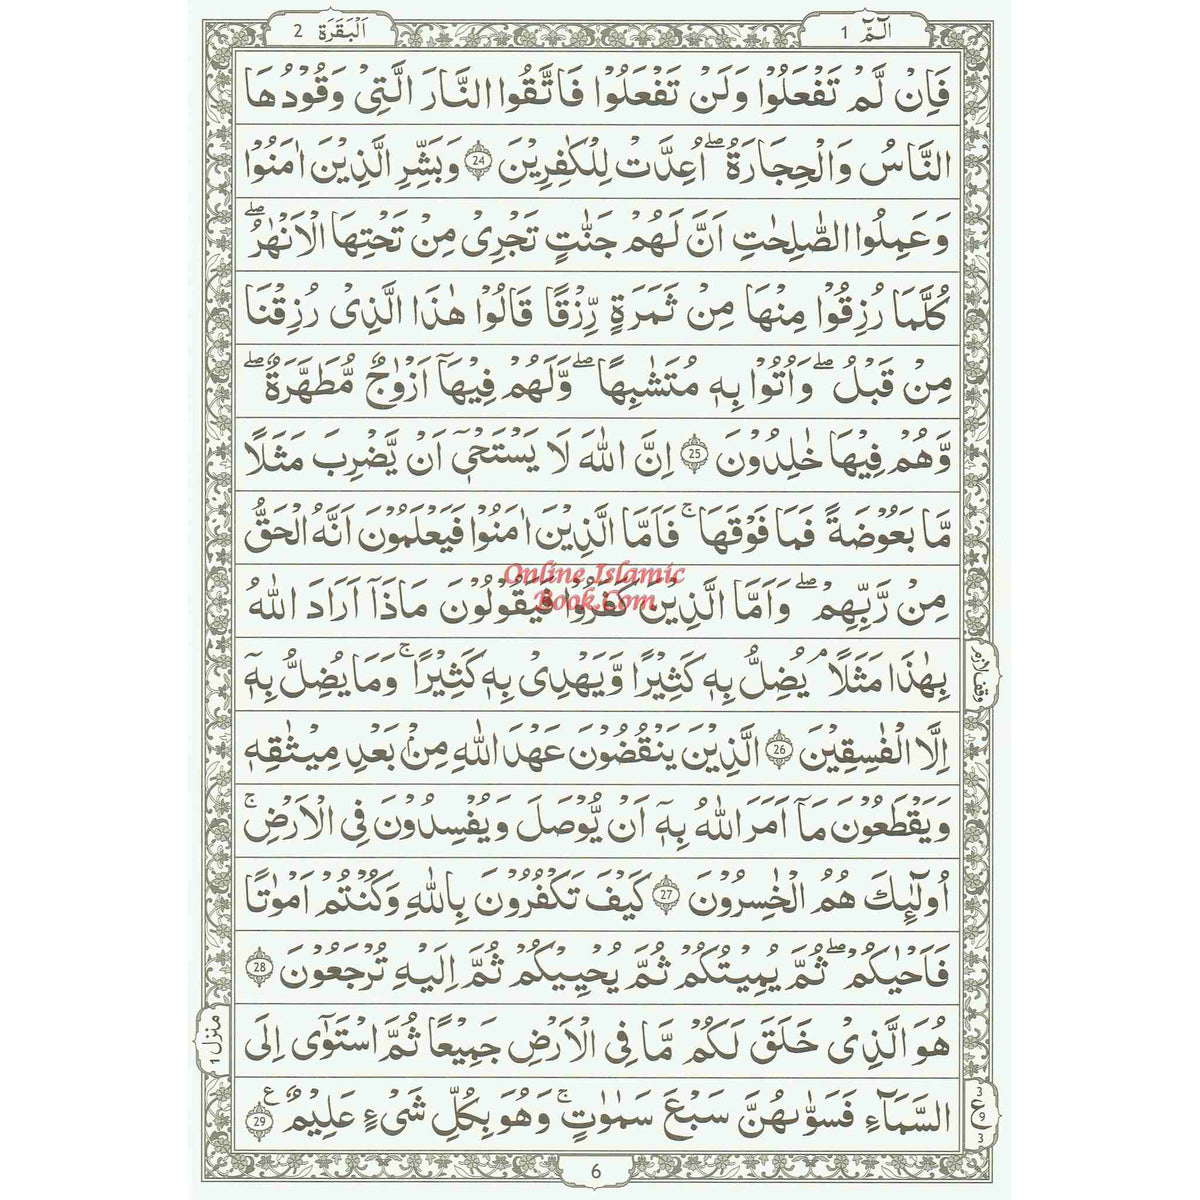 الٓمّٓ 1
اَلْبَقَرَة 2
فَاِنْ لَّمْ تَفْعَلُوْا وَلَنْ تَفْعَلُوْا فَاتَّقُوا النَّارَ الَّتِىْ وَقُوْدُهَا
النَّاسُ وَالْحِجَارَةُ ۖ اُعِدَّتْ لِلْكٰفِرِيْنَ 24 وَبَشِّرِ الَّذِيْنَ اٰمَنُوْا
وَعَمِلُوا الصّٰلِحٰتِ اَنَّ لَهُمْ جَنّٰتٍ تَجْرِىْ مِنْ تَحْتِهَا الْاَنْهٰرُ ۖ
كُلَّمَا رُزِقُوْا مِنْهَا مِنْ ثَمَرَةٍ رِّزْقًا قَالُوْا هٰذَا الَّذِىْ رُزِقْنَا
مِنْ قَبْلُ ۖ وَاُتُوْا بِهٖ مُتَشٰبِهًا ۖ وَّلَهُمْ فِيْهَآ اَزْوَاجٌ مُّطَهَّرَةٌ ۖ
وَّهُمْ فِيْهَا خٰلِدُوْنَ 25 اِنَّ اللّٰهَ لَا يَسْتَحْىٖٓ اَنْ يَّضْرِبَ مَثَلًا
مَّا بَعُوْضَةً فَمَا فَوْقَهَا ۚ فَاَمَّا الَّذِيْنَ اٰمَنُوْا فَيَعْلَمُوْنَ اَنَّهُ الْحَقُّ
مِنْ رَّبِّهِمْ ۖ وَاَمَّا الَّذِيْنَ كَفَرُوْا فَيَقُوْلُوْنَ مَاذَآ اَرَادَ اللّٰهُ
Online Islamic
Book.Com
بِهٰذَا مَثَلًا ۘ يُضِلُّ بِهٖ كَثِيْرًا وَّيَهْدِىْ بِهٖ كَثِيْرًا ۚ وَمَا يُضِلُّ بِهٖٓ
وقف لازم
اِلَّا الْفٰسِقِيْنَ 26 الَّذِيْنَ يَنْقُضُوْنَ عَهْدَ اللّٰهِ مِنْۢ بَعْدِ مِيْثٰقِهٖ
وَيَقْطَعُوْنَ مَآ اَمَرَ اللّٰهُ بِهٖٓ اَنْ يُّوْصَلَ وَيُفْسِدُوْنَ فِى الْاَرْضِ ۚ
اُولٰٓئِكَ هُمُ الْخٰسِرُوْنَ 27 كَيْفَ تَكْفُرُوْنَ بِاللّٰهِ وَكُنْتُمْ اَمْوَاتًا
فَاَحْيٰكُمْ ۖ ثُمَّ يُمِيْتُكُمْ ثُمَّ يُحْيِيْكُمْ ثُمَّ اِلَيْهِ تُرْجَعُوْنَ 28
هُوَ الَّذِىْ خَلَقَ لَكُمْ مَّا فِى الْاَرْضِ جَمِيْعًا ثُمَّ اسْتَوٰٓى اِلَى
منزل 1
السَّمَآءِ فَسَوّٰىهُنَّ سَبْعَ سَمٰوٰتٍ ۚ وَهُوَ بِكُلِّ شَىْءٍ عَلِيْمٌ ع 29
3
ع 9
3
6